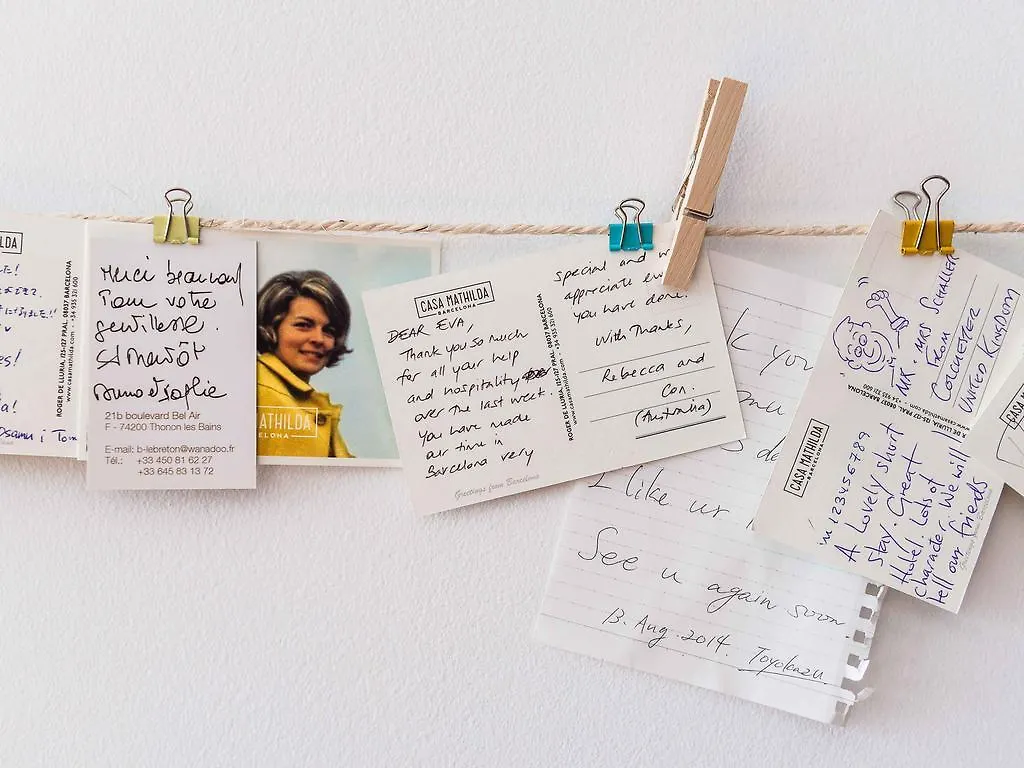 LDA
ROGER DE LLURIA, 125-127 PRAL. 08037 BARCELONA
www.casamathilda.com · +34 935 321 600
Osamu i Tom
Merci beaucoup
pour votre
gentillesse.
à bientôt
Bruno et Sophie
21b boulevard Bel Air
F - 74200 Thonon les Bains
E-mail: b-lebreton@wanadoo.fr
Tél.: +33 450 81 62 27
+33 645 83 13 72
MATHILDA
ELONA
CASA MATHILDA
BARCELONA
DEAR EVA,
Thank you so much
for all your help
and hospitality
over the last week.
You have made
our time in
Barcelona very
Greetings from Barcelona
ROGER DE LLURIA, 125-127 PRAL. 08037 BARCELONA
www.casamathilda.com · +34 935 321 600
special and w
appreciate ev
you have done.
With Thanks,
Rebecca and
Con.
(Australia)
k you
I like ur
See u again soon
13. Aug. 2014.
Toyokazu
MR. MRS SCHALLER
FROM
COLCHESTER
UNITED KINGDOM
CASA MATHILDA
BARCELONA
in 123456789
A Lovely short
stay. Great
Hotel. Lots of
character. We will
tell our friends
Greetings from Barcelona
CASA